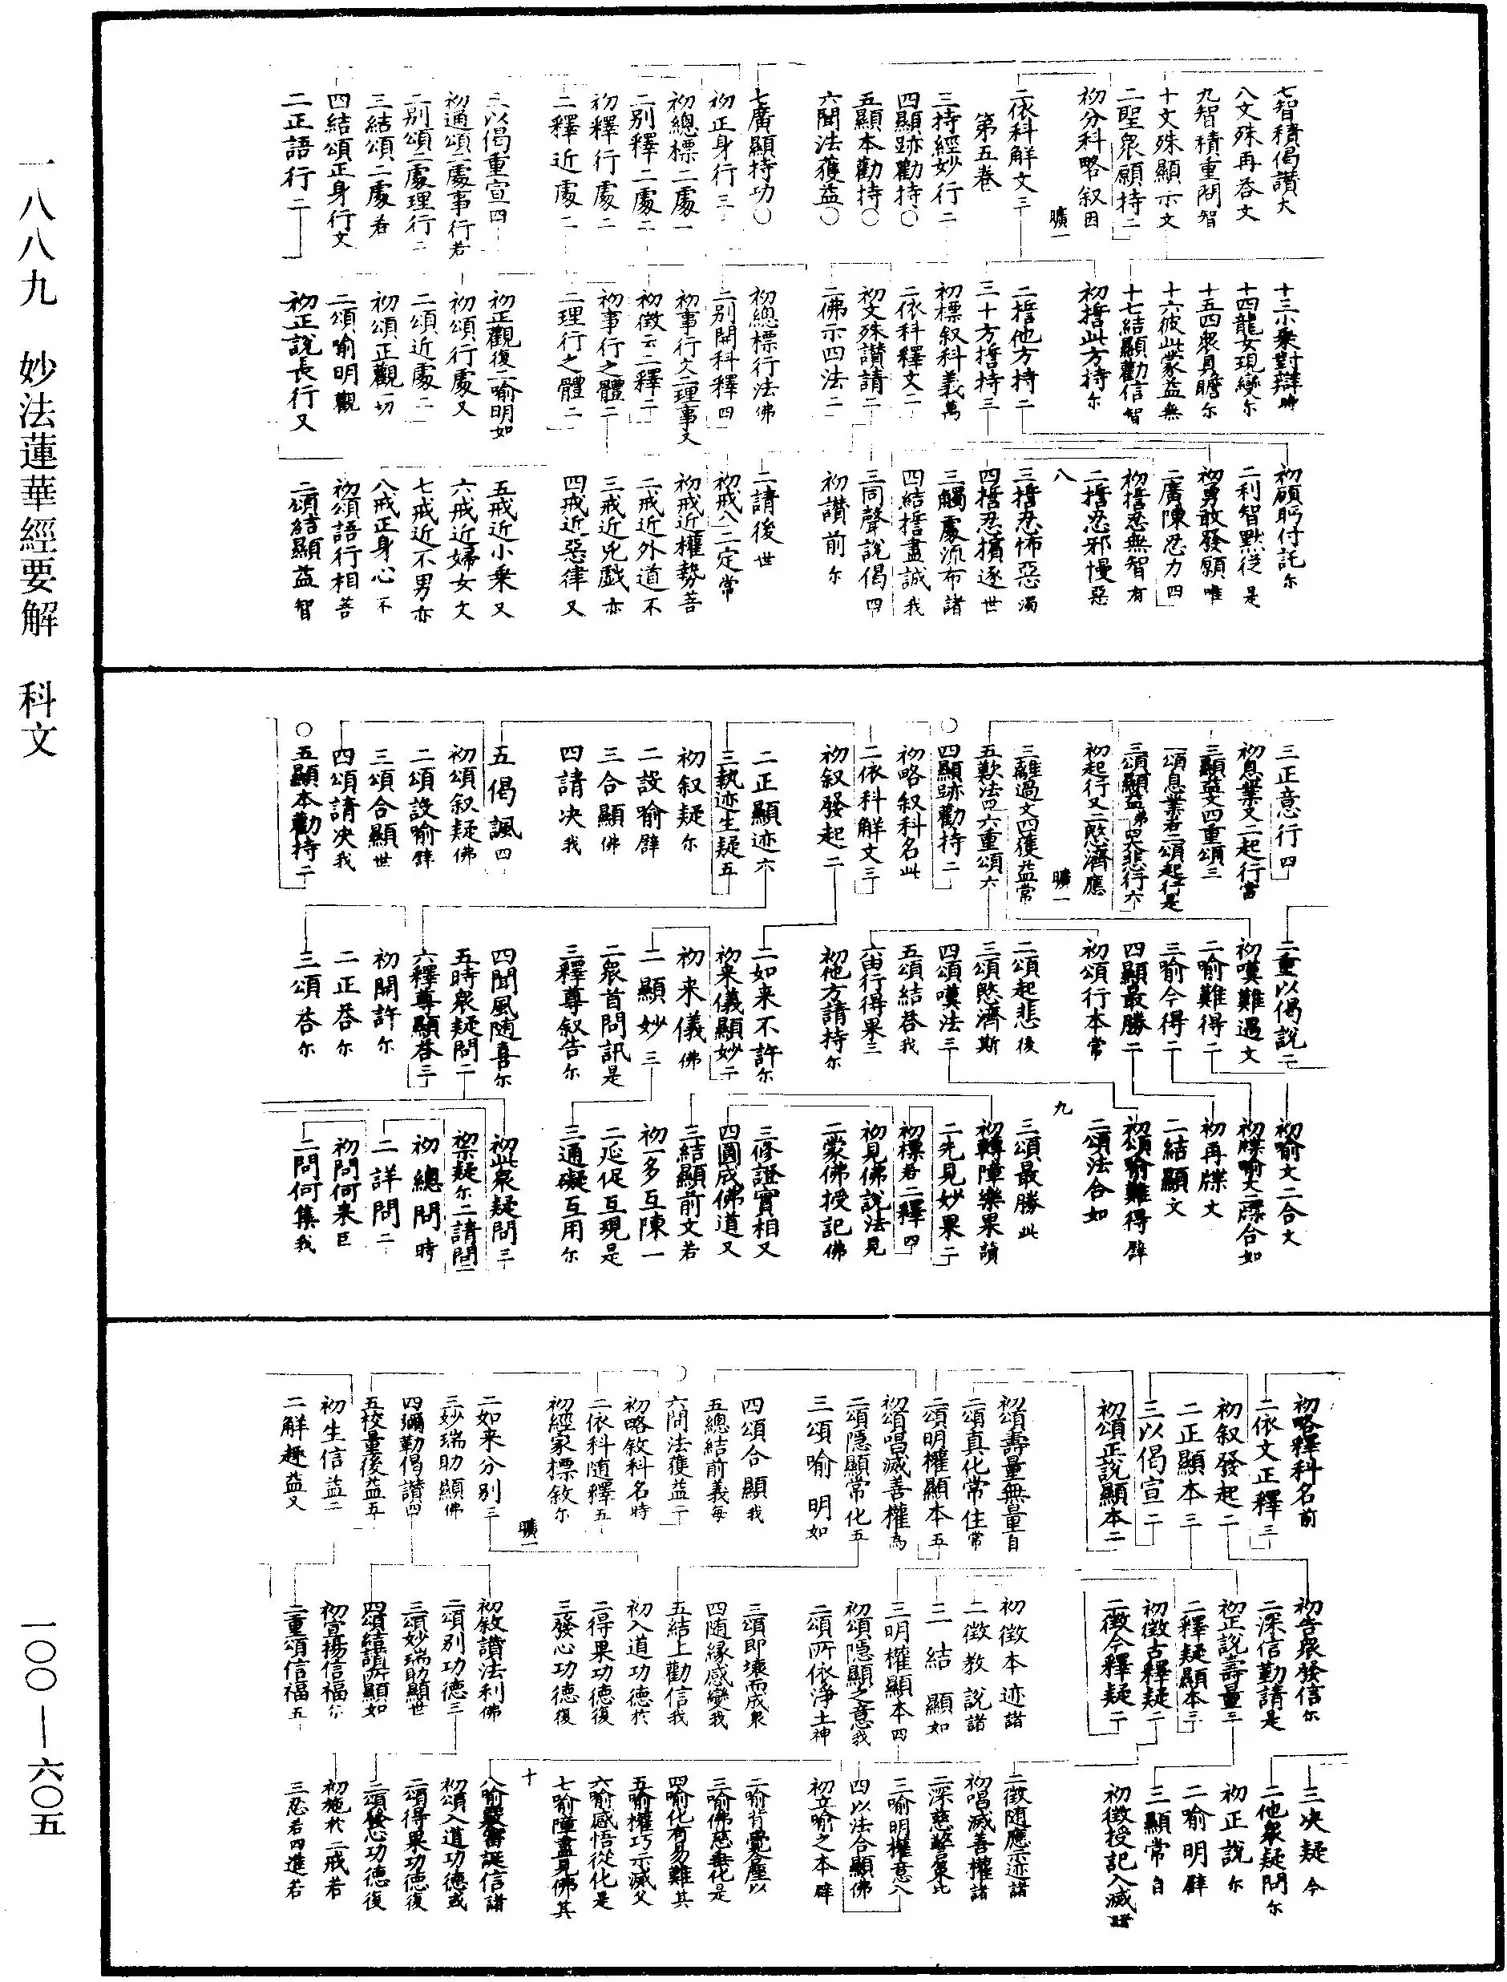 一八八九　妙法蓮華經要解　科文
一〇〇—六〇五
七智積偈讚大
八文殊再荅文
九智積重問智
十文殊顯示文
二聖衆願持二
初分科略叙因
曠一
二依科解文三
第五卷
三持經妙行二
四顯跡勸持〇
五顯本勸持〇
六聞法獲益〇
七廣顯持功〇
初正身行三
初總標二處一
二別釋二處二
初釋行處二
二釋近處二
三以偈重宣四
初通頌二處事行若
二別頌二處理行二
三結頌二處若
四結頌正身行文
二正語行二
十三小乘對辯時
十四龍女現變尓
十五四衆具瞻尓
十六彼此蒙益無
十七結顯勸信智
初誓此方持尓
二誓他方持二
三十方誓持三
初標叙科義萬
二依科釋文二
初文殊讚請二
二佛示四法二
初總標行法佛
二別開科釋四
初事行次二理事又
初徵云二釋二
初事行之體二
二理行之體二
初正觀復二喻明如
初頌行處又
二頌近處二
初頌正觀一切
二頌喻明觀
初正說長行又
初顧眄付託尓
二利智默從是
初勇敢發願唯
二廣陳忍力四
初誓忍無智有
二誓忍邪慢惡
八
三誓忍怖惡濁
四誓忍擯逐世
三觸處流布諸
四結誓盡誠我
三同聲說偈四
初讚前尓
二請後世
初戒八二定常
初戒近權勢菩
二戒近外道不
三戒近兇戲亦
四戒近惡律又
五戒近小乘又
六戒近婦女文
七戒近不男亦
八戒正身心不
初頌語行相菩
二頌結顯益智
三正意行四
初息業文二起行當
三顯益文四重頌三
初頌息業若二頌起行是
三頌顯益弟四大悲行六
初起行又二愍濟應
曠一
三離過文四獲益常
五歎法四六重頌六
〇四顯跡勸持二
初略叙科名此
二依科解文三
初叙發起二
二正顯迹六
三執迹生疑五
初叙疑尓
二設喻譬
三合顯佛
四請决我
五偈諷四
初頌叙疑佛
二頌設喻譬
三頌合顯世
四頌請决我
〇五顯本勸持二
二重以偈說二
初嘆難遇文
二喻難得二
三喻今得二
四顯最勝二
初頌行本常
二頌起悲後
三頌愍濟斯
四頌嘆法三
五頌結荅我
六由行得果三
初他方請持尓
二如来不許尓
初来儀顯妙二
初来儀佛
二顯妙三
二衆首問訊是
三釋尊叙告尓
四聞風随喜尓
五時衆疑問二
六釋尊顯荅三
初開許尓
二正荅尓
三頌荅尓
初喻文二合文
初牒喻文二牒合如
初再牒文
二結顯文
初頌喻難得譬
二頌法合如
九
三頌最勝此
初轉障樂果讀
二先見妙果二
初標若二釋四
初見佛說法見
二蒙佛授記佛
三修證實相又
四圓成佛道又
三結顯前文若
初一多互陳一
二延促互現是
三通礙互用尓
初此衆疑問三
初梁疑尓二請問二
初總問時
二詳問二
初問何来臣
二問何集我
初略釋科名前
二依文正釋三
初叙發起二
二正顯本三
三以偈宣二
初頌正說顯本二
初頌壽量無量自
二頌真化常住常
二頌明權顯本五
初頌唱滅善權為
二頌隱顯常化五
三頌喻明如
四頌合顯我
五總結前義每
〇六聞法獲益二
初略敘科名時
二依科随釋五
初經家標敘尓
曠一
二如来分別三
三妙瑞助顯佛
四彌勒偈讚四
五校量後益五
初生信益二
二解趣益又
初告衆發信尓
二深信勤請是
初正說壽量三
二釋疑顯本三
初徵古釋疑二
二徵今釋疑二
初徵本迹諸
二徵教說諸
三結顯如
三明權顯本四
初頌隱顯之意我
二頌所依淨土神
三頌即壞而成衆
四随緣感變我
五結上勸信我
初入道功德於
二得果功德復
三發心功德復
初敘讚法利佛
二頌別功德三
三頌妙瑞助顯世
四頌結請所顯如
初宣揚信福尓
二重頌信福五
三决疑今
二他衆疑問尓
初正說尓
二喻明譬
三顯常自
初徵授記入滅諸
二徵随應示迹諸
初唱滅善權諸
二深慈警策比
三喻明權意八
四以法合顯佛
初立喻之本譬
二喻背覺合塵以
三喻佛慈垂化是
四喻化有易難其
五喻權巧示滅父
六喻感悟從化是
七喻障盡見佛其
十
初頌入道功德或
二頌得果功德復
三頌發心功德復
初施於二戒若
三忍若四進若